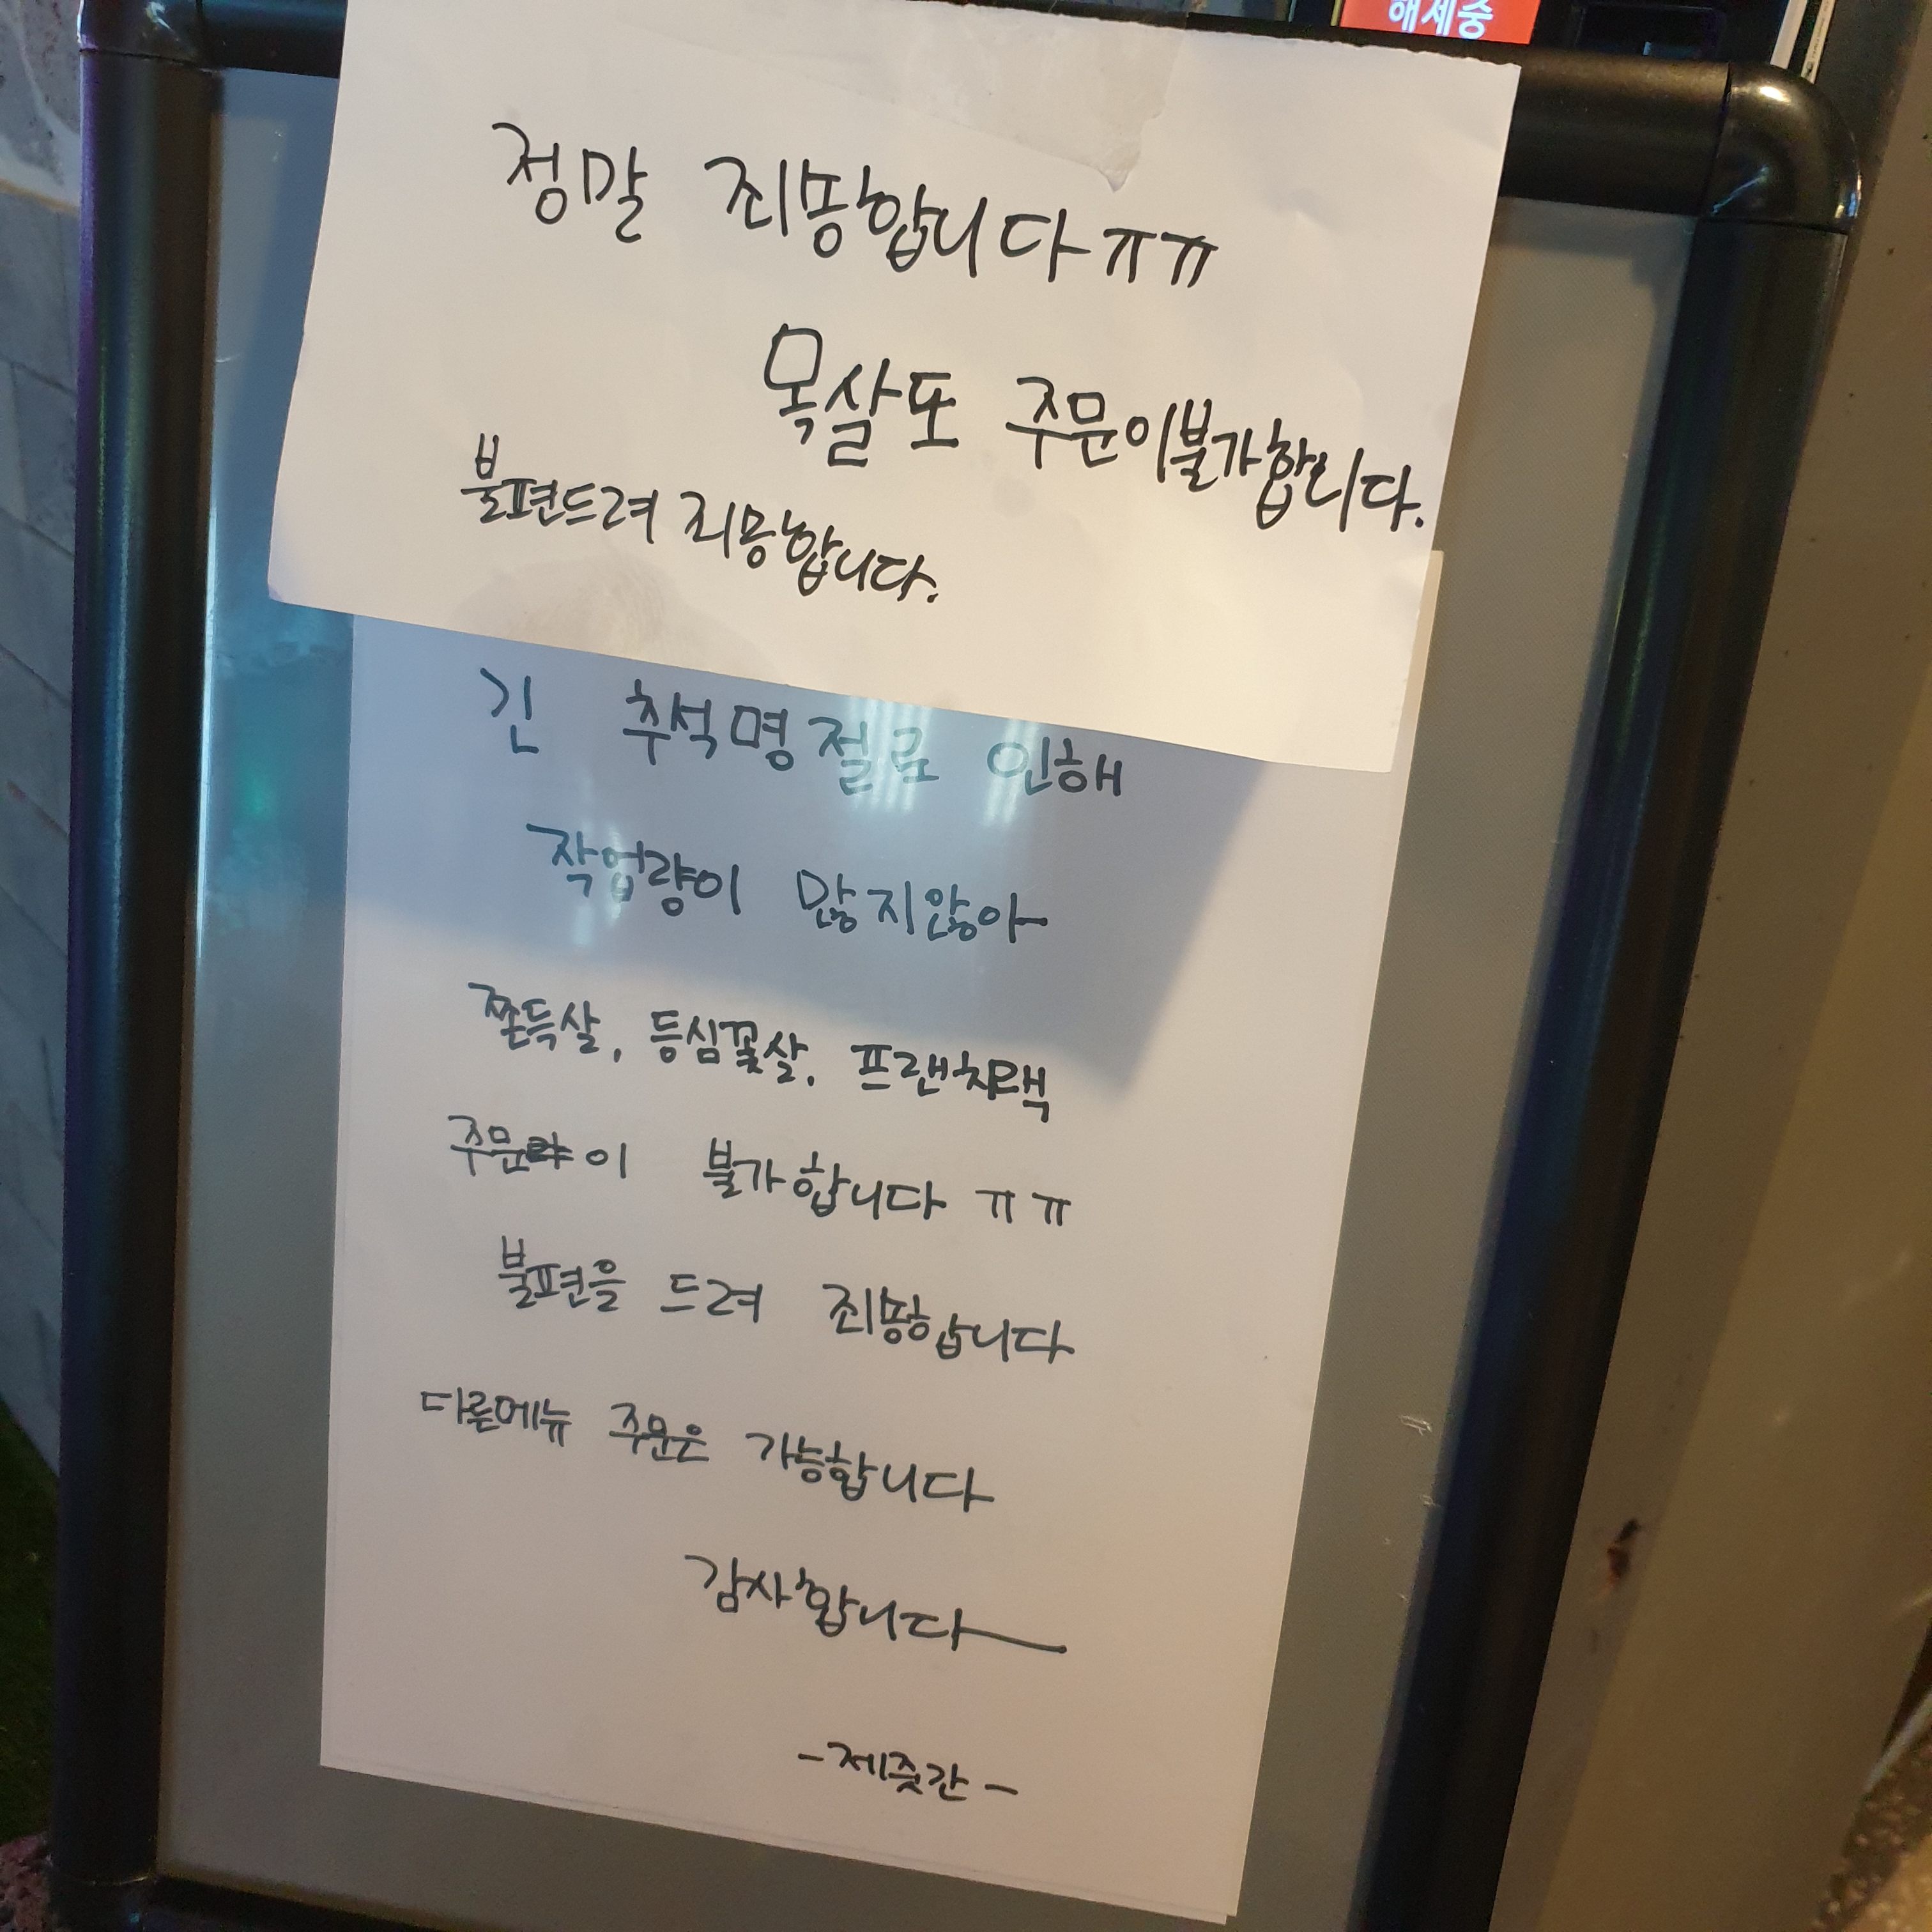 해제중
정말 죄송합니다ㅠㅠ
목살또 주문이불가합니다.
불편드려 죄송합니다.
긴 추석명절로 인해
작업량이 많지않아
쫀득살, 등심꽃살, 프랜치랙
주문이 불가합니다 ㅠㅠ
불편을 드려 죄송합니다
다른메뉴 주문은 가능합니다
감사합니다
-제줏간-